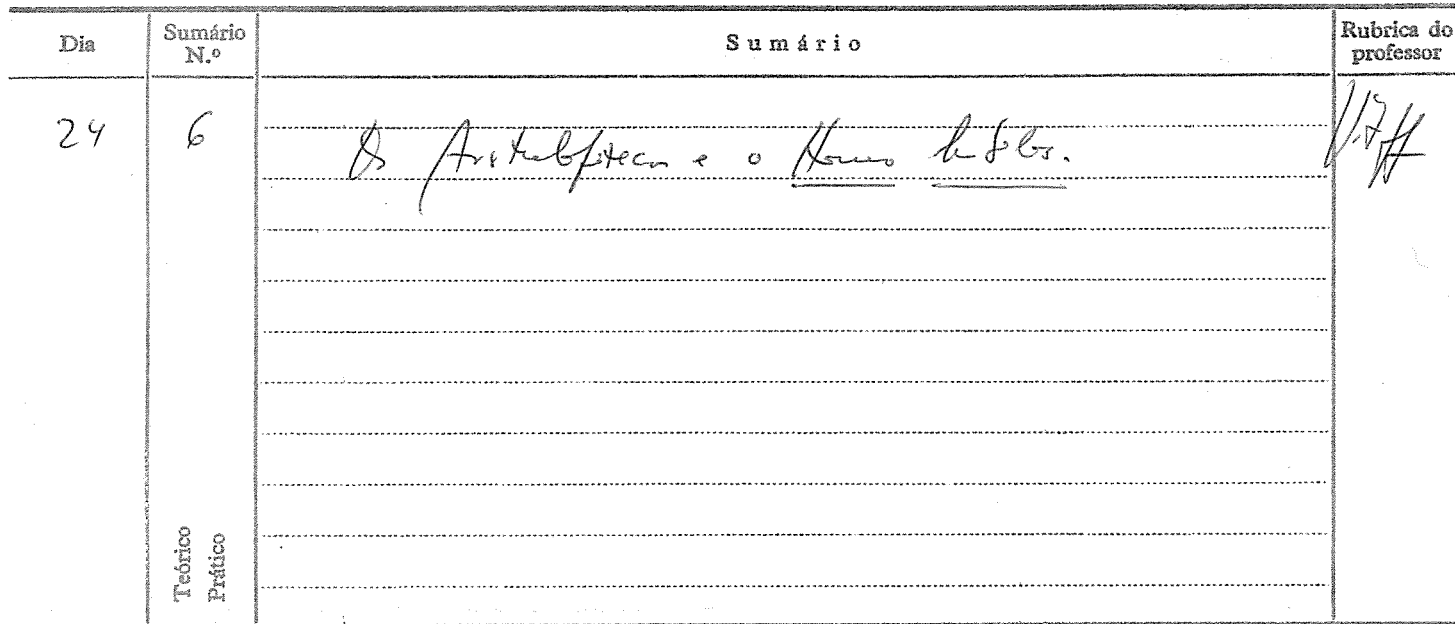 Dia Sumário N.º Sumário Rubrica do professor
24 6 Os Australopitecos e o Homo habilis.
Teórico
Prático